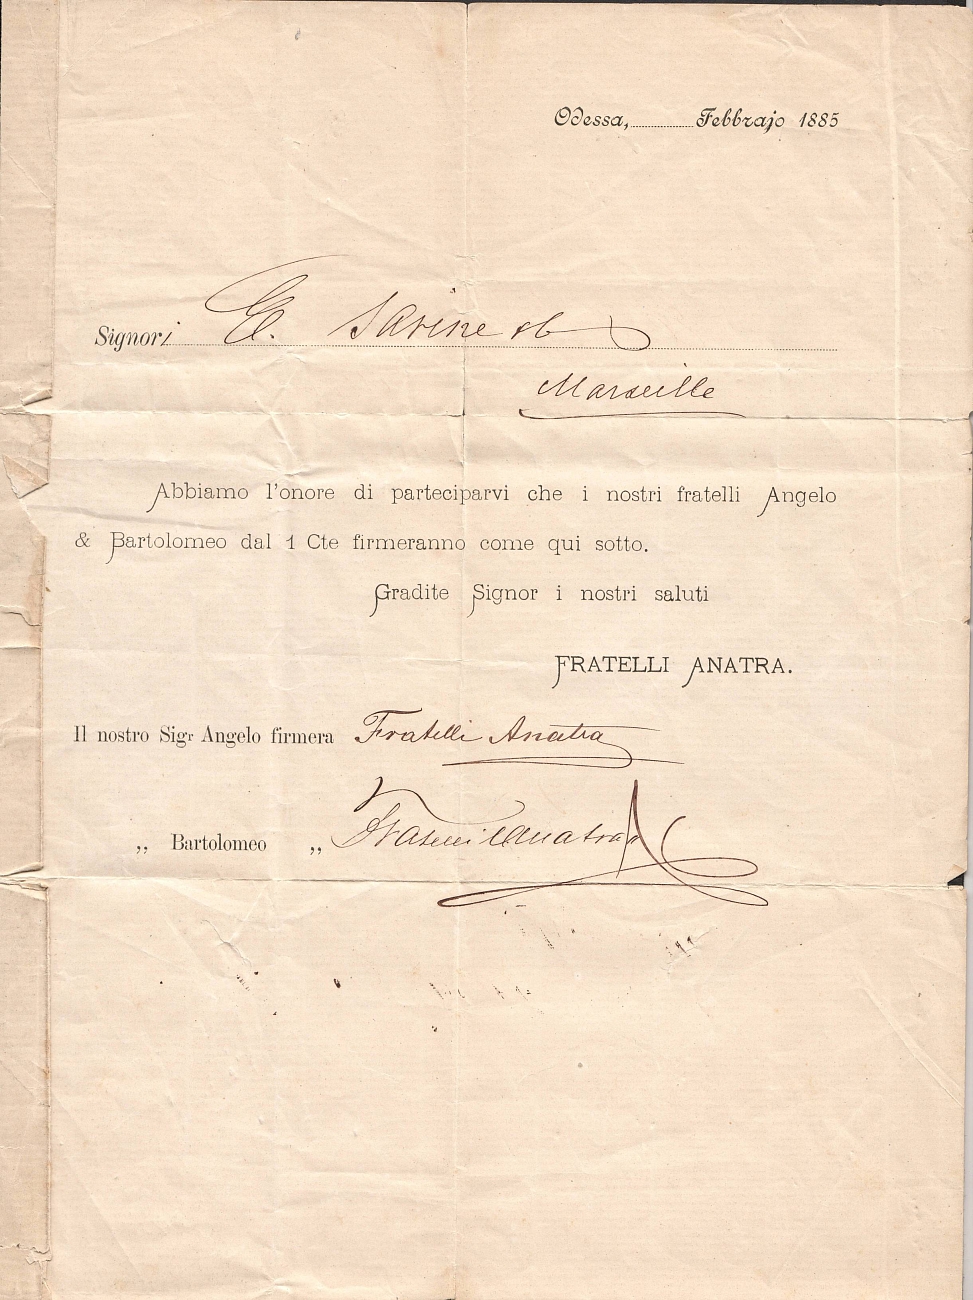 Odessa, Febbrajo 1885
Signori E. Savine &
Marseille
Abbiamo l'onore di parteciparvi che i nostri fratelli Angelo
& Bartolomeo dal 1 Cte firmeranno come qui sotto.
Gradite Signor i nostri saluti
FRATELLI ANATRA.
Il nostro Sigr Angelo firmera Fratelli Anatra
„ Bartolomeo „ Fratelli Anatra